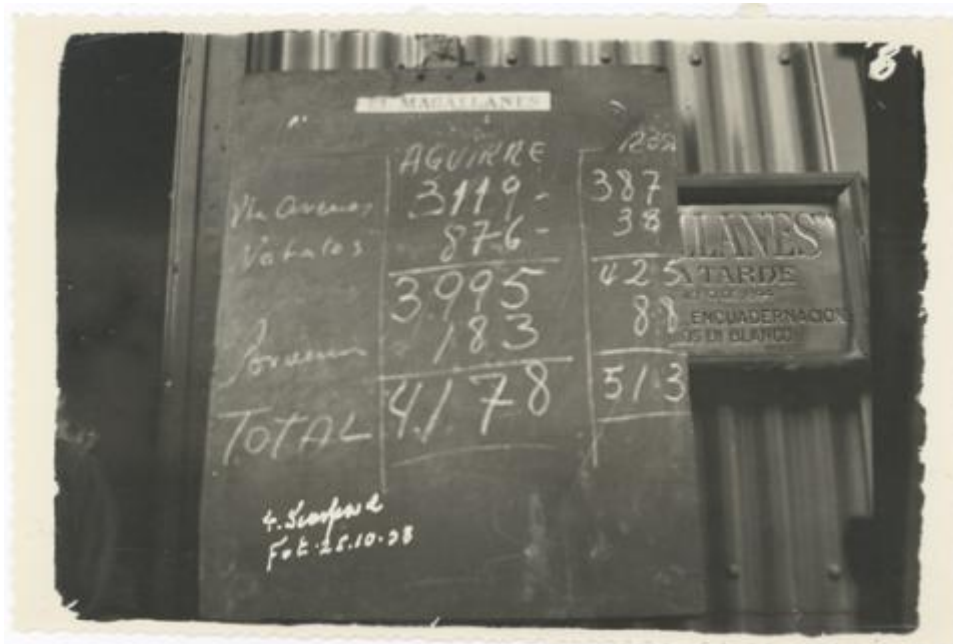 EL MAGALLANES
AGUIRRE
Pta Arenas 3119- 387
Natales 876- 38
3995 425
Porvenir 183 88
TOTAL 4178 513
LLANES
A TARDE
ENCUADERNACION
OS EN BLANCO
Fot. 25.10-38
8